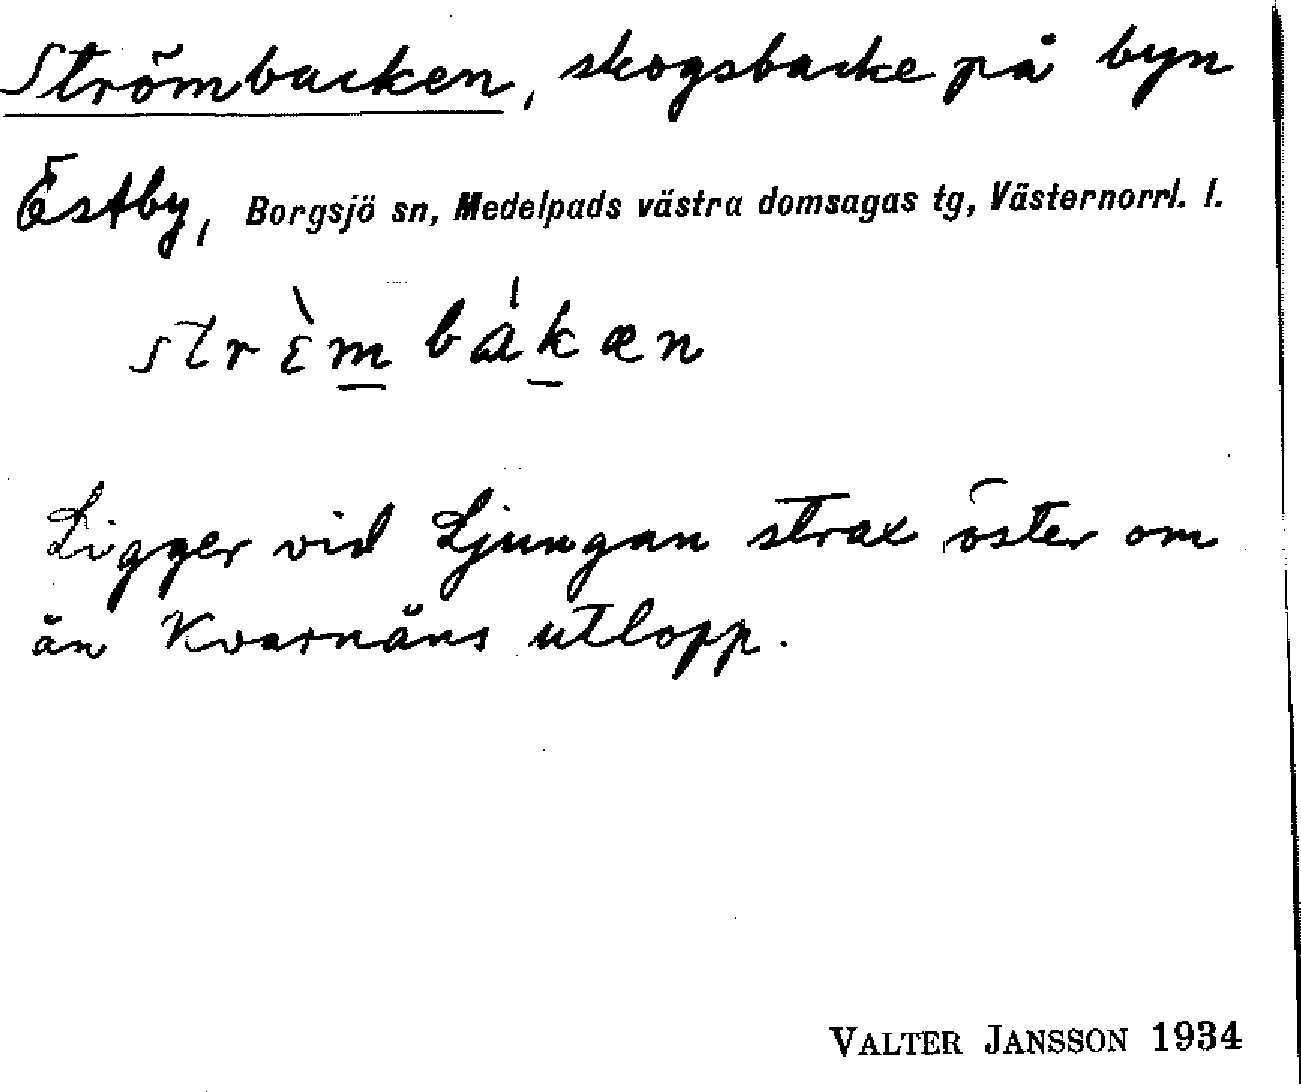 Strömbacken, skogsbacke på byn
Östby, Borgsjö sn, Medelpads västra domsagas tg, Västernorrl. l.
strɛ̀m bákæn
Ligger vid Ljungan strax öster om
ån Kvarnåns utlopp.
VALTER JANSSON 1934